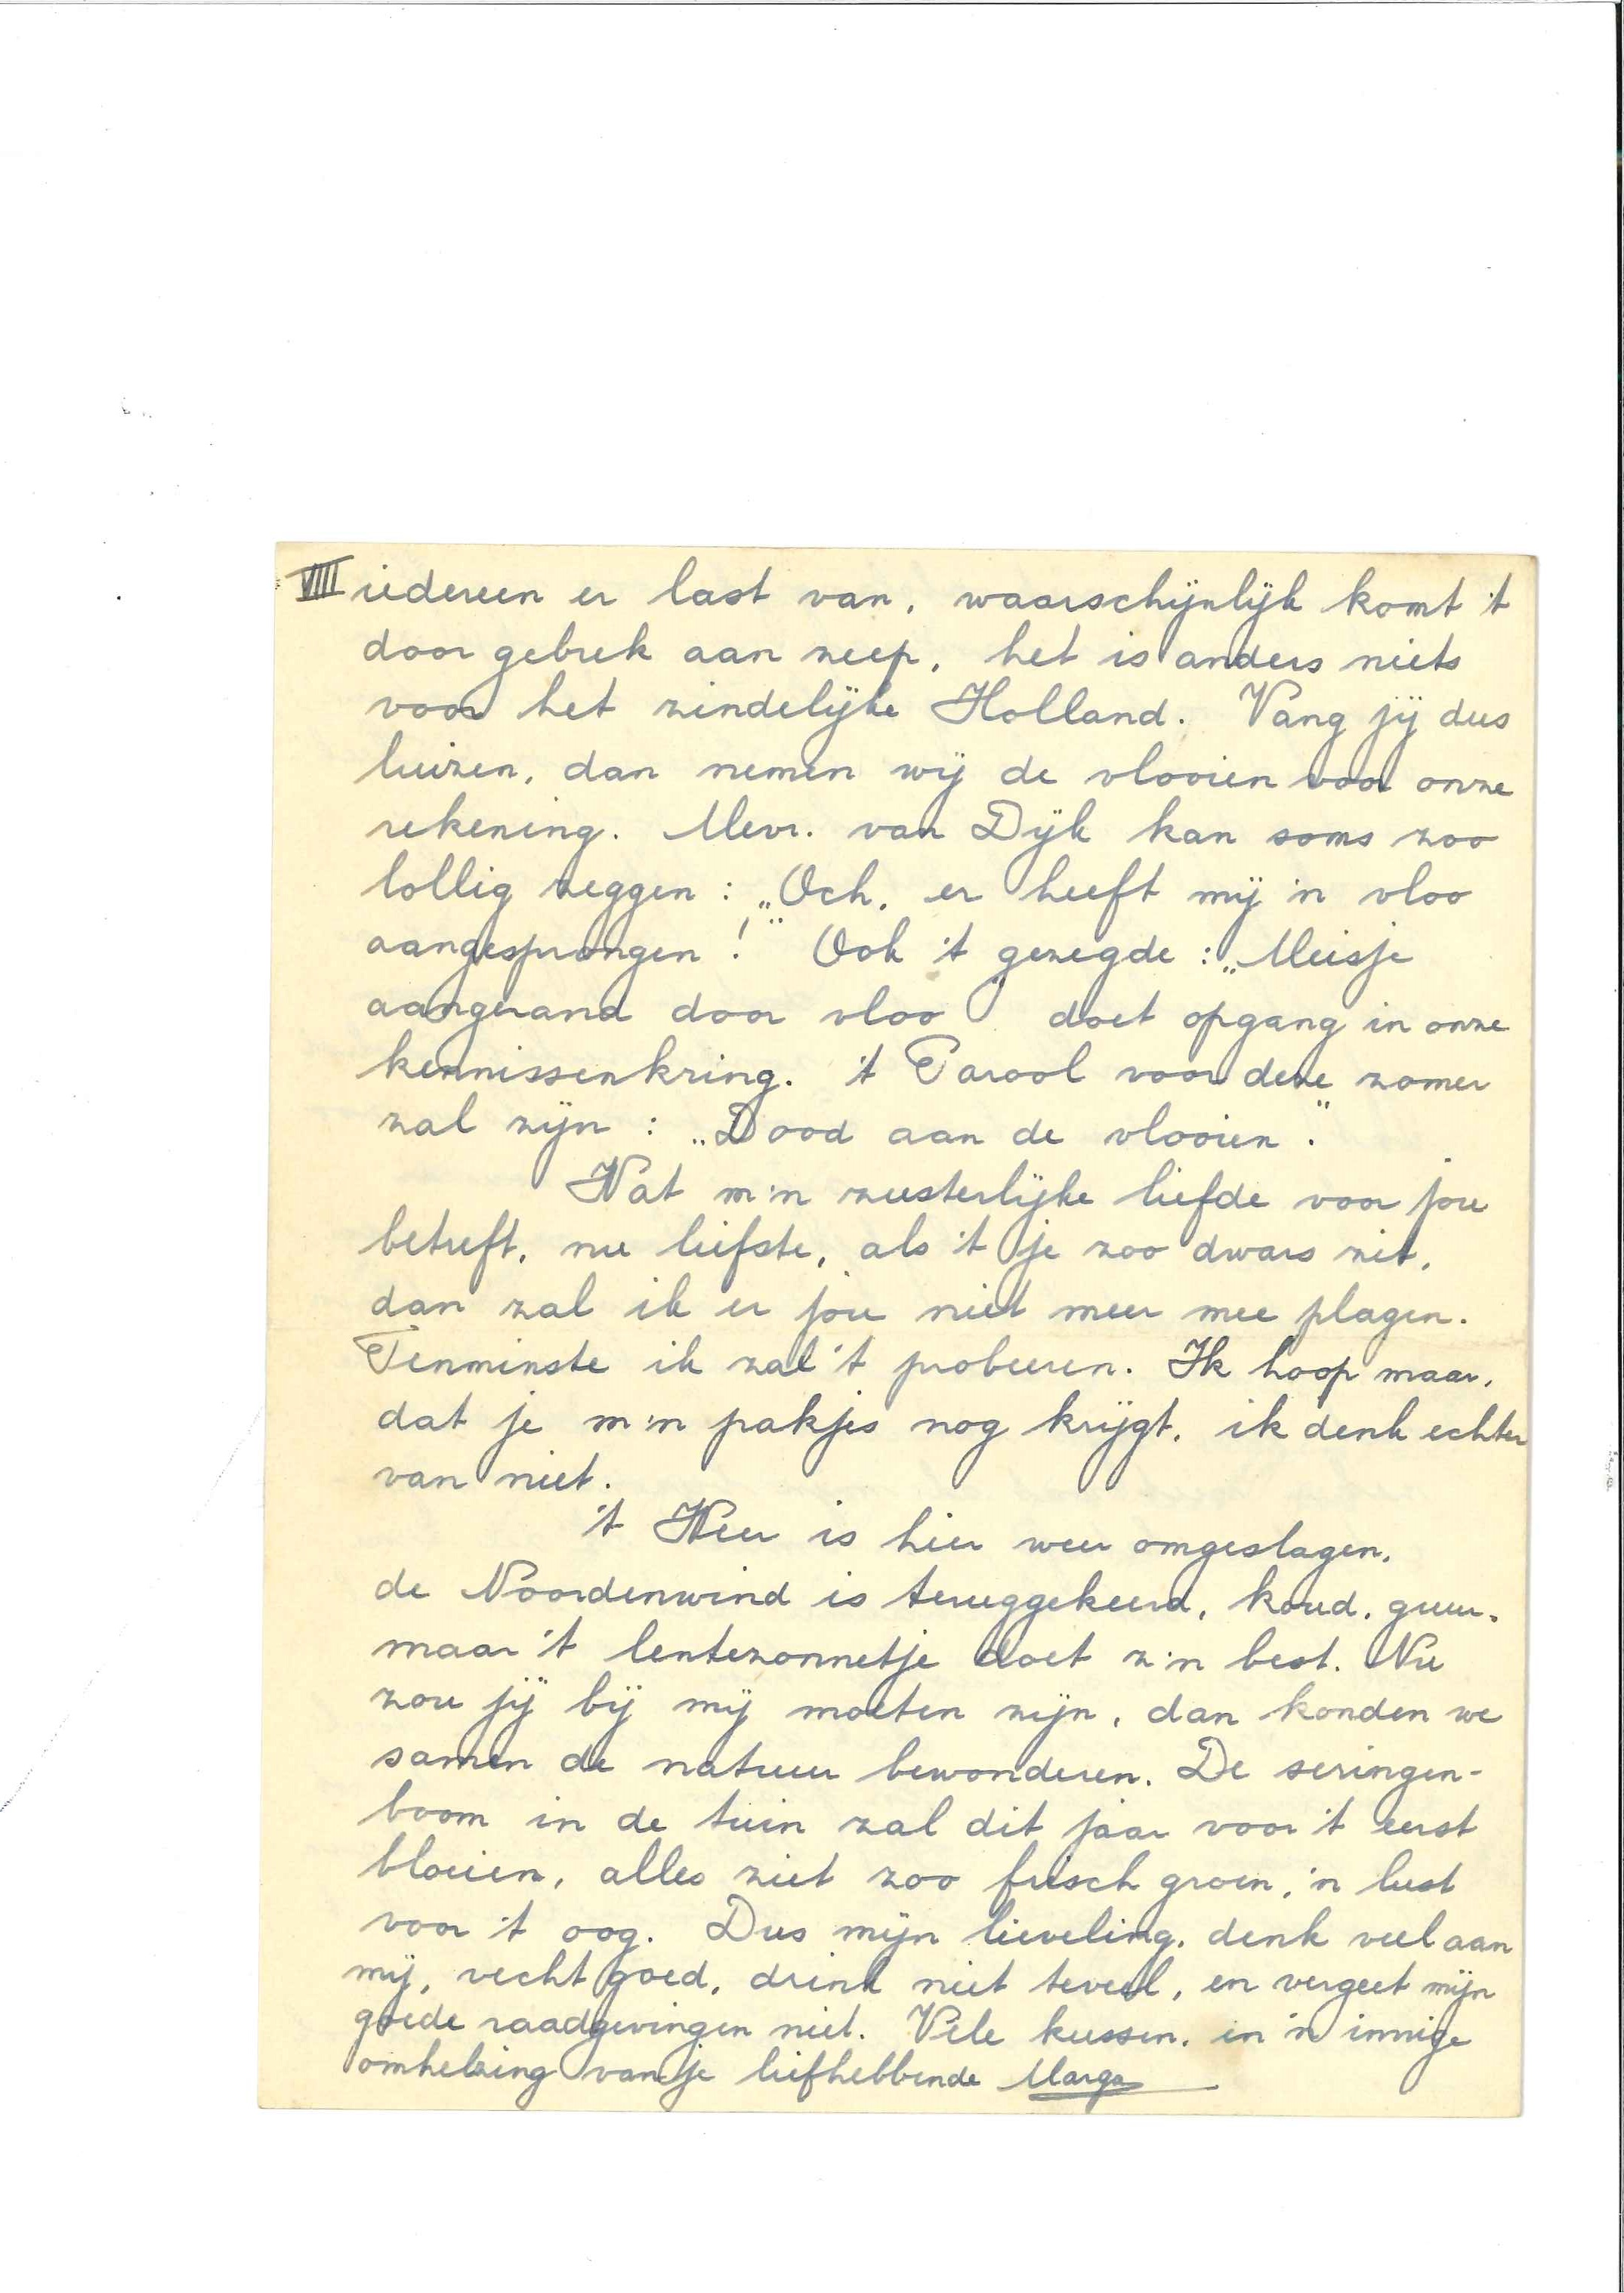 VIII iedereen er last van, waarschijnlijk komt 't
door gebrek aan zeep, het is anders niets
voor het zindelijke Holland. Vang jij dus
luizen, dan nemen wij de vlooien voor onze
rekening. Mevr. van Dijk kan soms zoo
lollig zeggen: „Och, er heeft mij 'n vloo
aangesprongen!” Ook 't gezegde: „Meisje
aangerand door vloo” doet opgang in onze
kennissenkring. 't Parool voor deze zomer
zal zijn: „Dood aan de vlooien”.
Wat m'n zusterlijke liefde voor jou
betreft, nu liefste, als 't je zoo dwars zit,
dan zal ik er jou niet meer mee plagen.
Tenminste ik zal 't probeeren. Ik hoop maar,
dat je m'n pakjes nog krijgt, ik denk echter
van niet.
't Weer is hier weer omgeslagen,
de Noordenwind is teruggekeerd, koud, guur,
maar 't lentezonnetje doet z'n best. Nu
zou jij bij mij moeten zijn, dan konden we
samen de natuur bewonderen. De seringen-
boom in de tuin zal dit jaar voor 't eerst
bloeien, alles ziet zoo frisch groen, 'n lust
voor 't oog. Dus mijn lieveling, denk veel aan
mij, vecht goed, drink niet teveel, en vergeet mijn
goede raadgevingen niet. Vele kussen, en 'n innige
omhelzing van je liefhebbende Marga